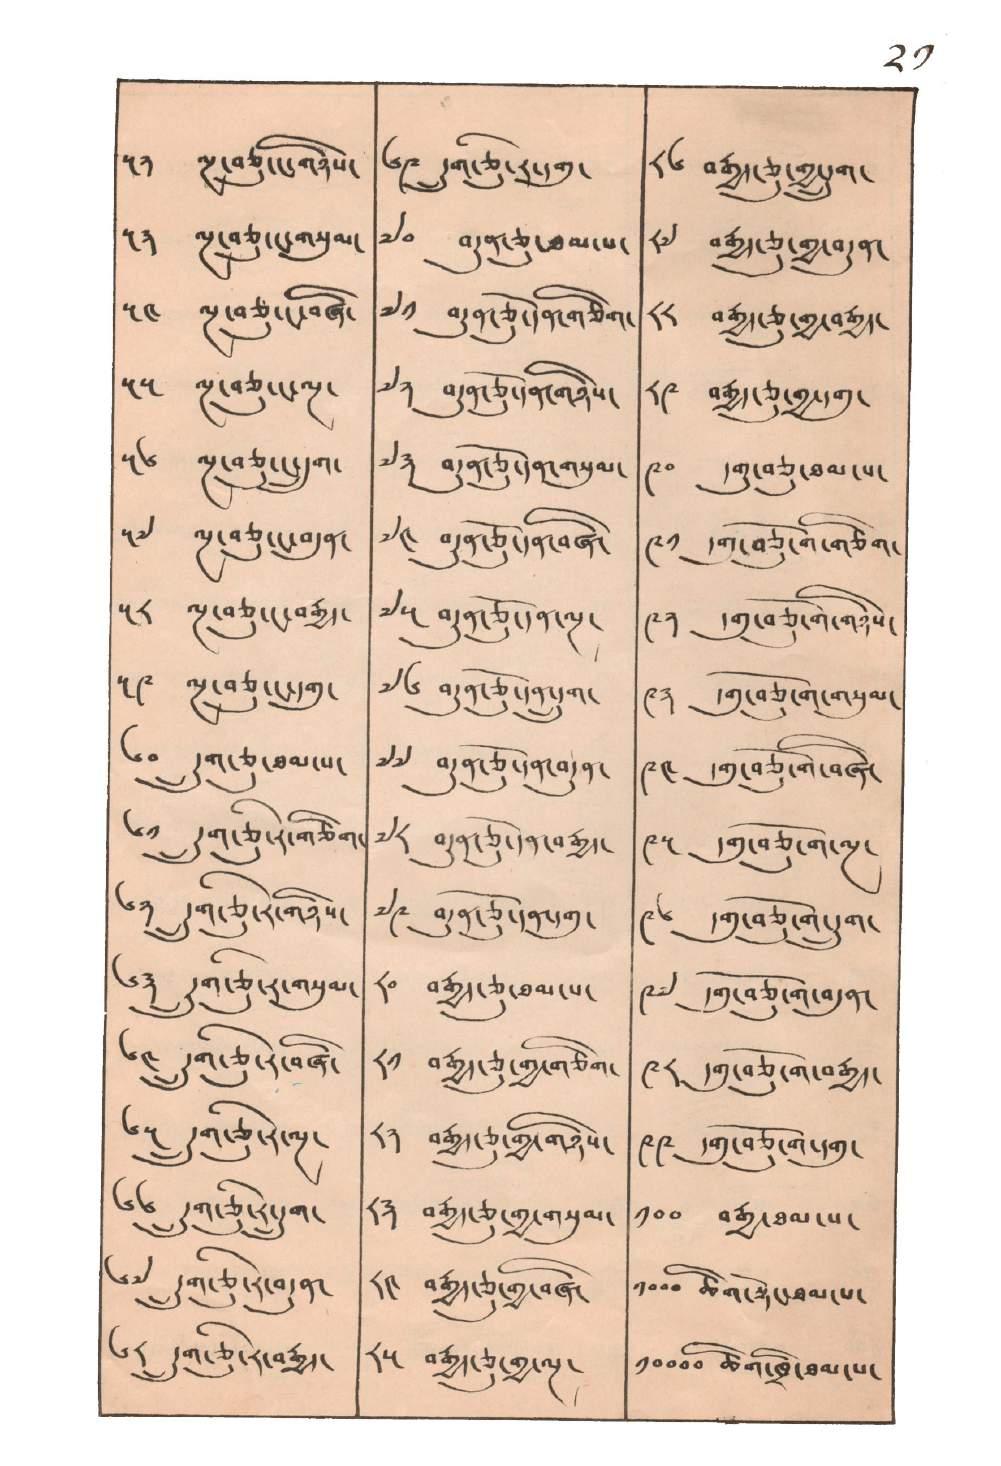 ༢༡
༥༢ ལྔ་བཅུ་ང་གཉིས་
༥༣ ལྔ་བཅུ་ང་གསུམ་
༥༤ ལྔ་བཅུ་ང་བཞི་
༥༥ ལྔ་བཅུ་ང་ལྔ་
༥༦ ལྔ་བཅུ་ང་དྲུག་
༥༧ ལྔ་བཅུ་ང་བདུན་
༥༨ ལྔ་བཅུ་ང་བརྒྱད་
༥༩ ལྔ་བཅུ་ང་དགུ་
༦༠ དྲུག་ཅུ་ཐམ་པ་
༦༡ དྲུག་ཅུ་རེ་གཅིག་
༦༢ དྲུག་ཅུ་རེ་གཉིས་
༦༣ དྲུག་ཅུ་རེ་གསུམ་
༦༤ དྲུག་ཅུ་རེ་བཞི་
༦༥ དྲུག་ཅུ་རེ་ལྔ་
༦༦ དྲུག་ཅུ་རེ་དྲུག་
༦༧ དྲུག་ཅུ་རེ་བདུན་
༦༨ དྲུག་ཅུ་རེ་བརྒྱད་
༦༩ དྲུག་ཅུ་རེ་དགུ་
༧༠ བདུན་ཅུ་ཐམ་པ་
༧༡ བདུན་ཅུ་དོན་གཅིག་
༧༢ བདུན་ཅུ་དོན་གཉིས་
༧༣ བདུན་ཅུ་དོན་གསུམ་
༧༤ བདུན་ཅུ་དོན་བཞི་
༧༥ བདུན་ཅུ་དོན་ལྔ་
༧༦ བདུན་ཅུ་དོན་དྲུག་
༧༧ བདུན་ཅུ་དོན་བདུན་
༧༨ བདུན་ཅུ་དོན་བརྒྱད་
༧༩ བདུན་ཅུ་དོན་དགུ་
༨༠ བརྒྱད་ཅུ་ཐམ་པ་
༨༡ བརྒྱད་ཅུ་གྱ་གཅིག་
༨༢ བརྒྱད་ཅུ་གྱ་གཉིས་
༨༣ བརྒྱད་ཅུ་གྱ་གསུམ་
༨༤ བརྒྱད་ཅུ་གྱ་བཞི་
༨༥ བརྒྱད་ཅུ་གྱ་ལྔ་
༨༦ བརྒྱད་ཅུ་གྱ་དྲུག་
༨༧ བརྒྱད་ཅུ་གྱ་བདུན་
༨༨ བརྒྱད་ཅུ་གྱ་བརྒྱད་
༨༩ བརྒྱད་ཅུ་གྱ་དགུ་
༩༠ དགུ་བཅུ་ཐམ་པ་
༩༡ དགུ་བཅུ་གོ་གཅིག་
༩༢ དགུ་བཅུ་གོ་གཉིས་
༩༣ དགུ་བཅུ་གོ་གསུམ་
༩༤ དགུ་བཅུ་གོ་བཞི་
༩༥ དགུ་བཅུ་གོ་ལྔ་
༩༦ དགུ་བཅུ་གོ་དྲུག་
༩༧ དགུ་བཅུ་གོ་བདུན་
༩༨ དགུ་བཅུ་གོ་བརྒྱད་
༩༩ དགུ་བཅུ་གོ་དགུ་
༡༠༠ བརྒྱ་ཐམ་པ་
༡༠༠༠ ཆིག་སྟོང་ཐམ་པ་
༡༠༠༠༠ ཆིག་ཁྲི་ཐམ་པ་